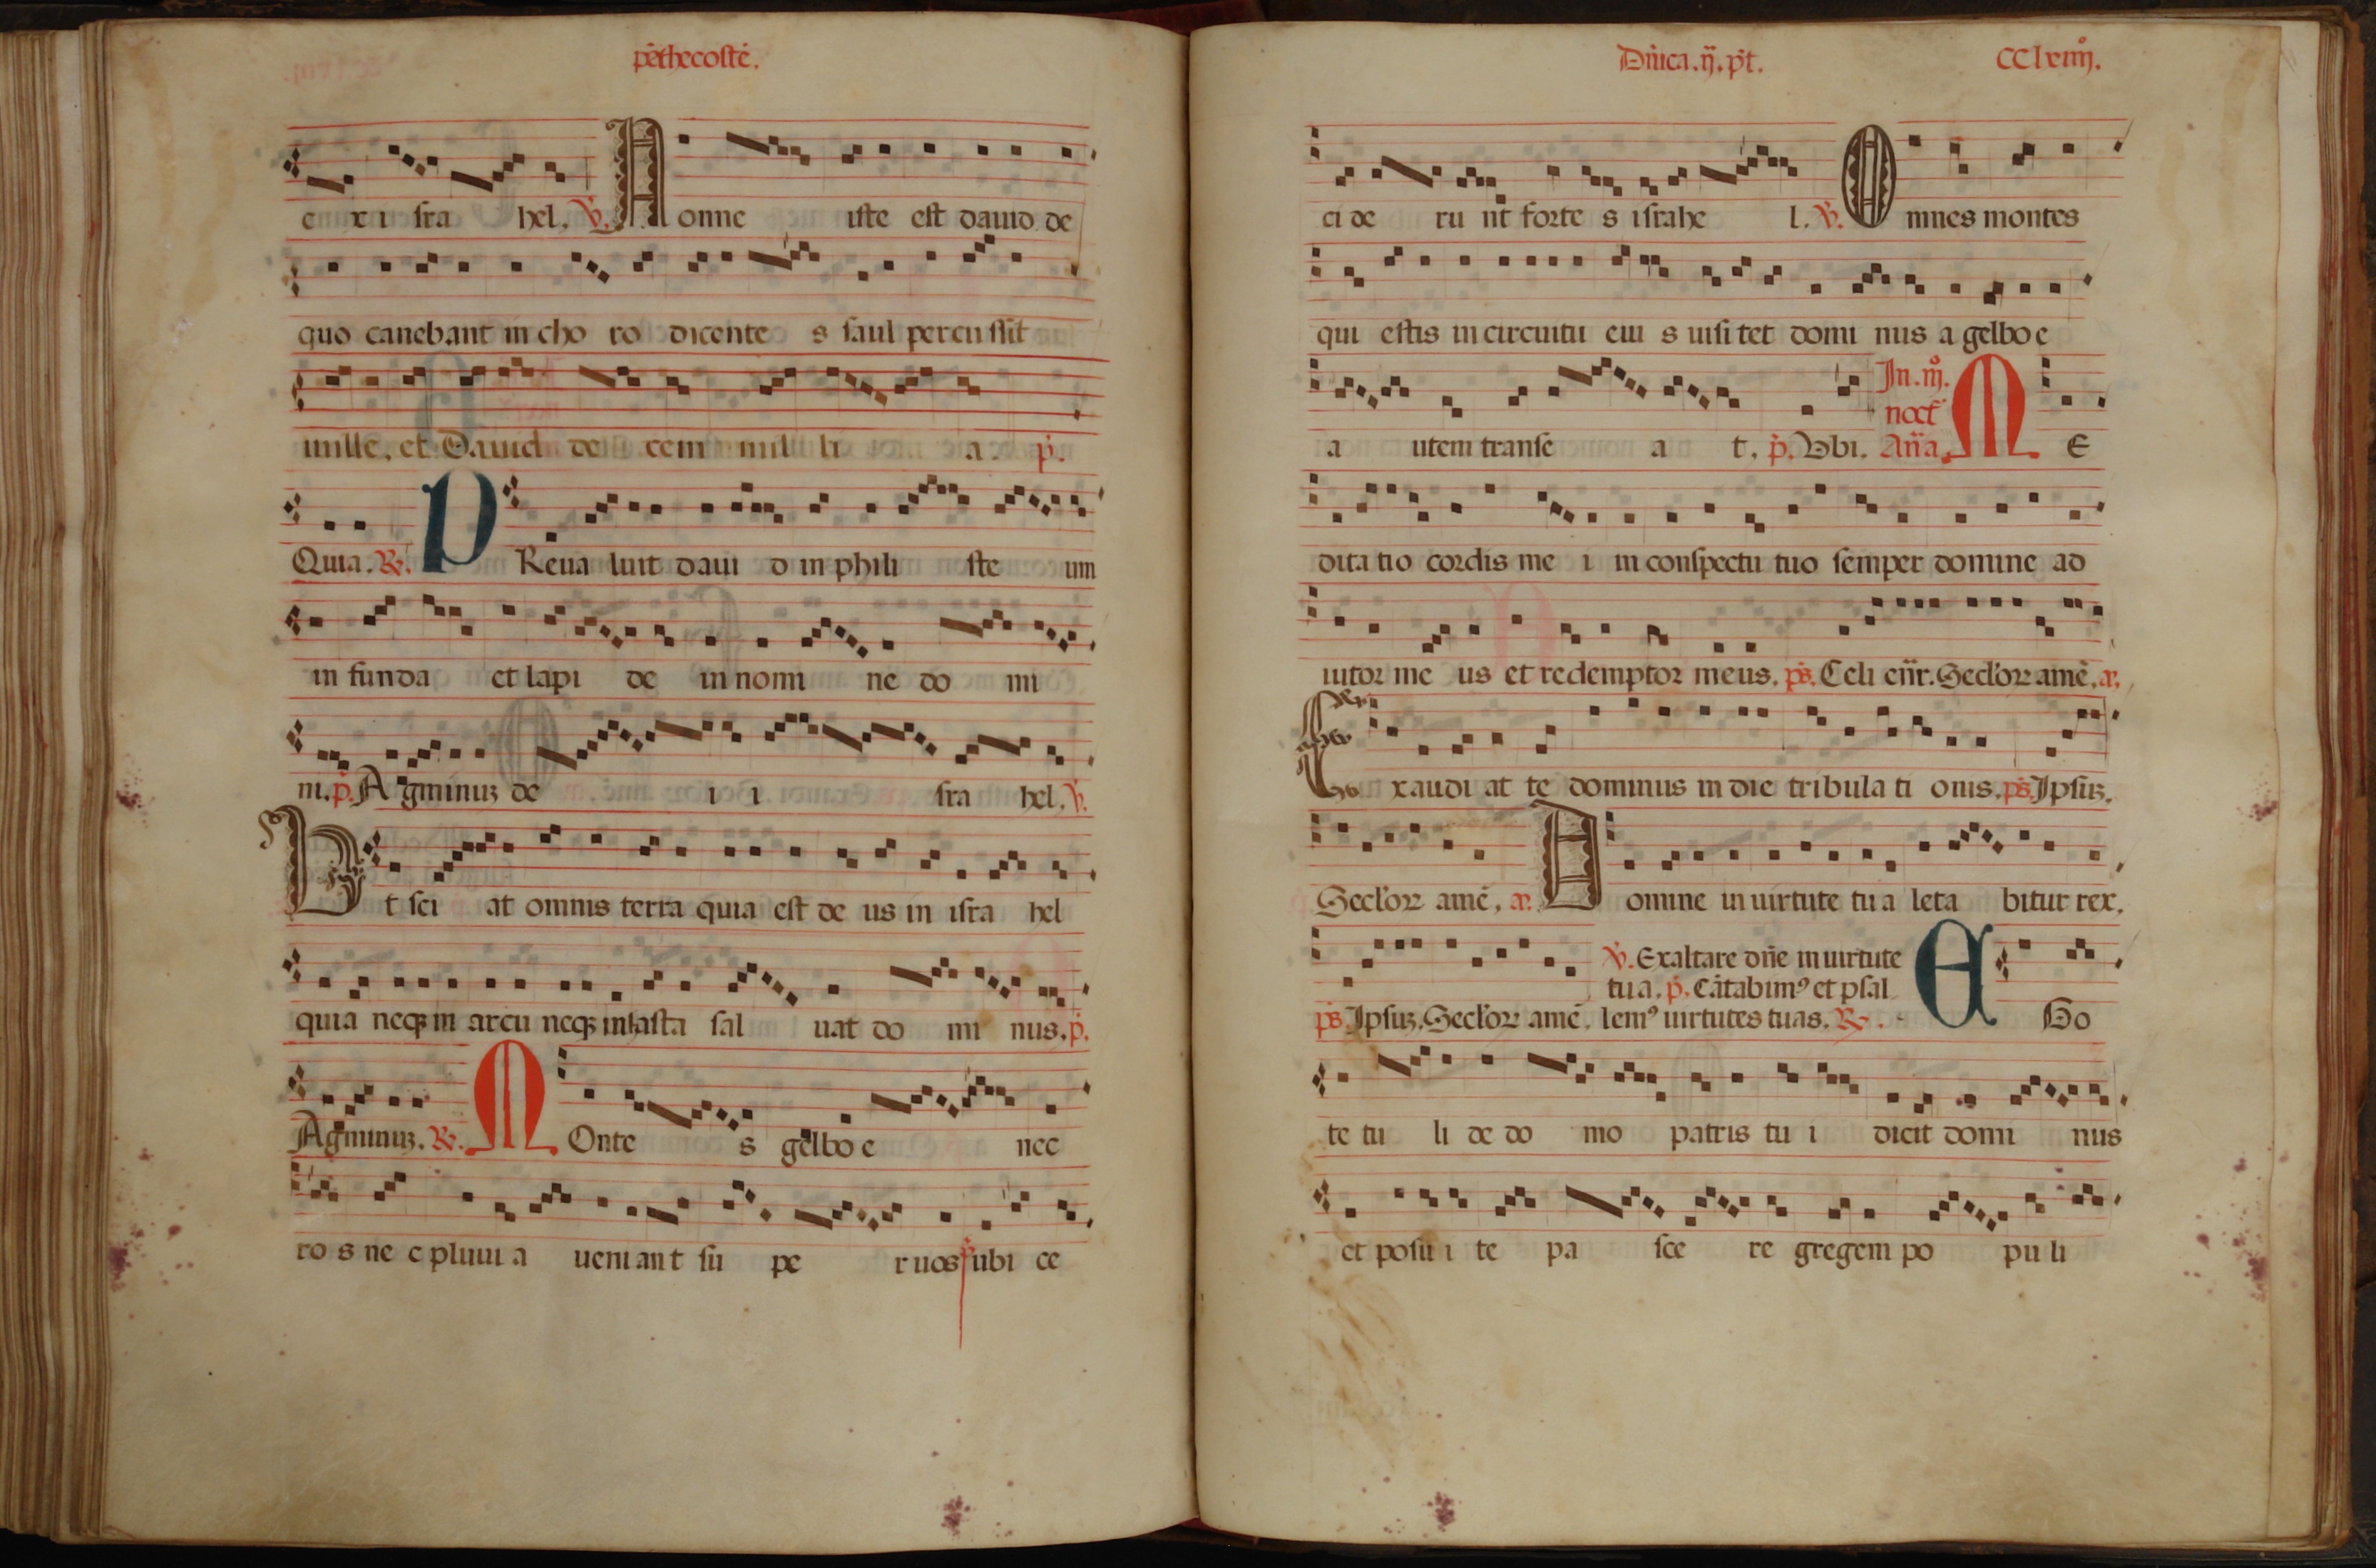 pēthecostē.
e x i sra hel. ℣. Nonne iste est dauid de
quo canebant in cho ro dicente s saul percu ssit
mille. et Dauid de cem mil li a. p̄.
Quia. ℟. PReua luit daui d in phili ste um
in funda et lapi de in nomi ne do mi
ni. p̄. Agminuz de i i sra hel. ℣.
Ut sci at omnis terra quia est de us in isra hel
quia neqz in arcu neqz in hasta sal uat do mi nus. p̄.
Agminuz. ℟. MOnte s gelbo e nec
ro s ne c pluui a ueniant su pe r uos ubi ce
Dn̄ica. ij. pt̄.
ci de ru nt forte s israhe l. ℣. Omnes montes
qui estis in circuitu eiu s uisi tet domi nus a gelbo e
a utem transe a t. p̄. Vbi. In. noct̄ An̄a. ME
dita tio cordis me i in conspectu tuo semper domine ad
iutor me us et redemptor meus. ps̄. Celi en̄r. Seclor̄ amē. a.
Exaudi at te dominus in die tribula ti onis. ps̄. Ipsuz.
Seclor̄ amē. a. Domine in uirtute tu a leta bitur rex.
℣. Exaltare dn̄e in uirtute
tu a. p̄. Cātabim⁹ et psal
ps̄. Ipsuz. Seclor̄ amē. lem⁹ uirtutes tuas. ℟. EGo
te tu li de do mo patris tu i dicit domi nus
et posu i te pa sce re gregem po pu li